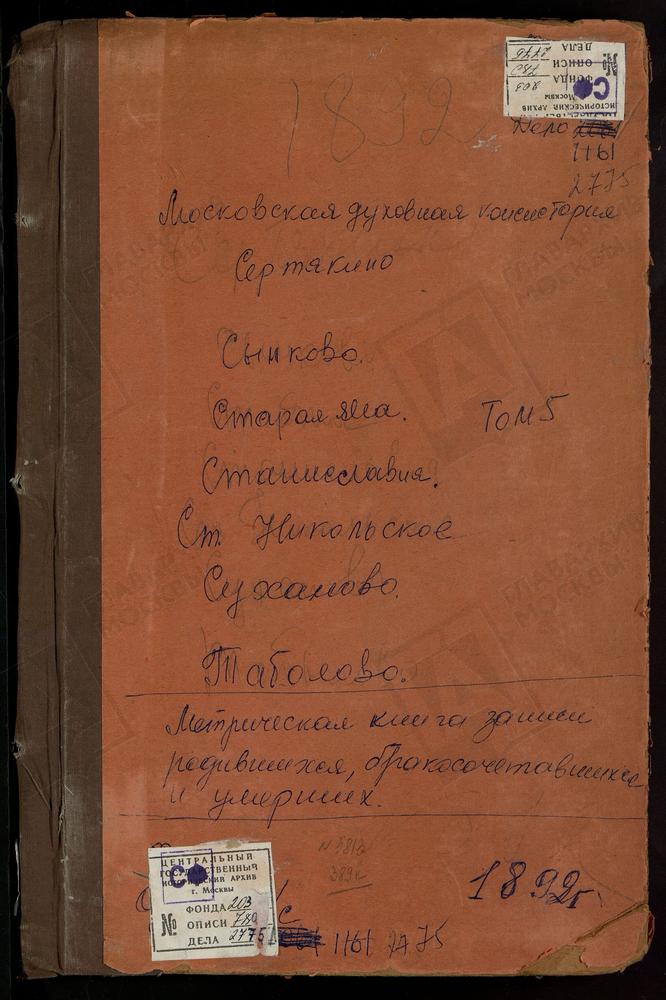 1892
ИСТОРИЧЕСКИЙ АРХИВ
Москвы
ФОНДА 203
№ ОПИСИ 780
ДЕЛА 2775
Дело
1161
2775
Московская духовная консистория
Сертякино
Сынково.
Старая яма. Том 5
Станиславля.
Ст. Никольское
Суханово.
Таболово.
Метрическая книга записи
родившихся, бракосочетавшихся
и умерших.
1892г.
ЦЕНТРАЛЬНЫЙ
ГОСУДАРСТВЕННЫЙ
ИСТОРИЧЕСКИЙ АРХИВ
г. Москвы
ФОНДА 203
№ ОПИСИ 780
ДЕЛА 2775
1161 2775